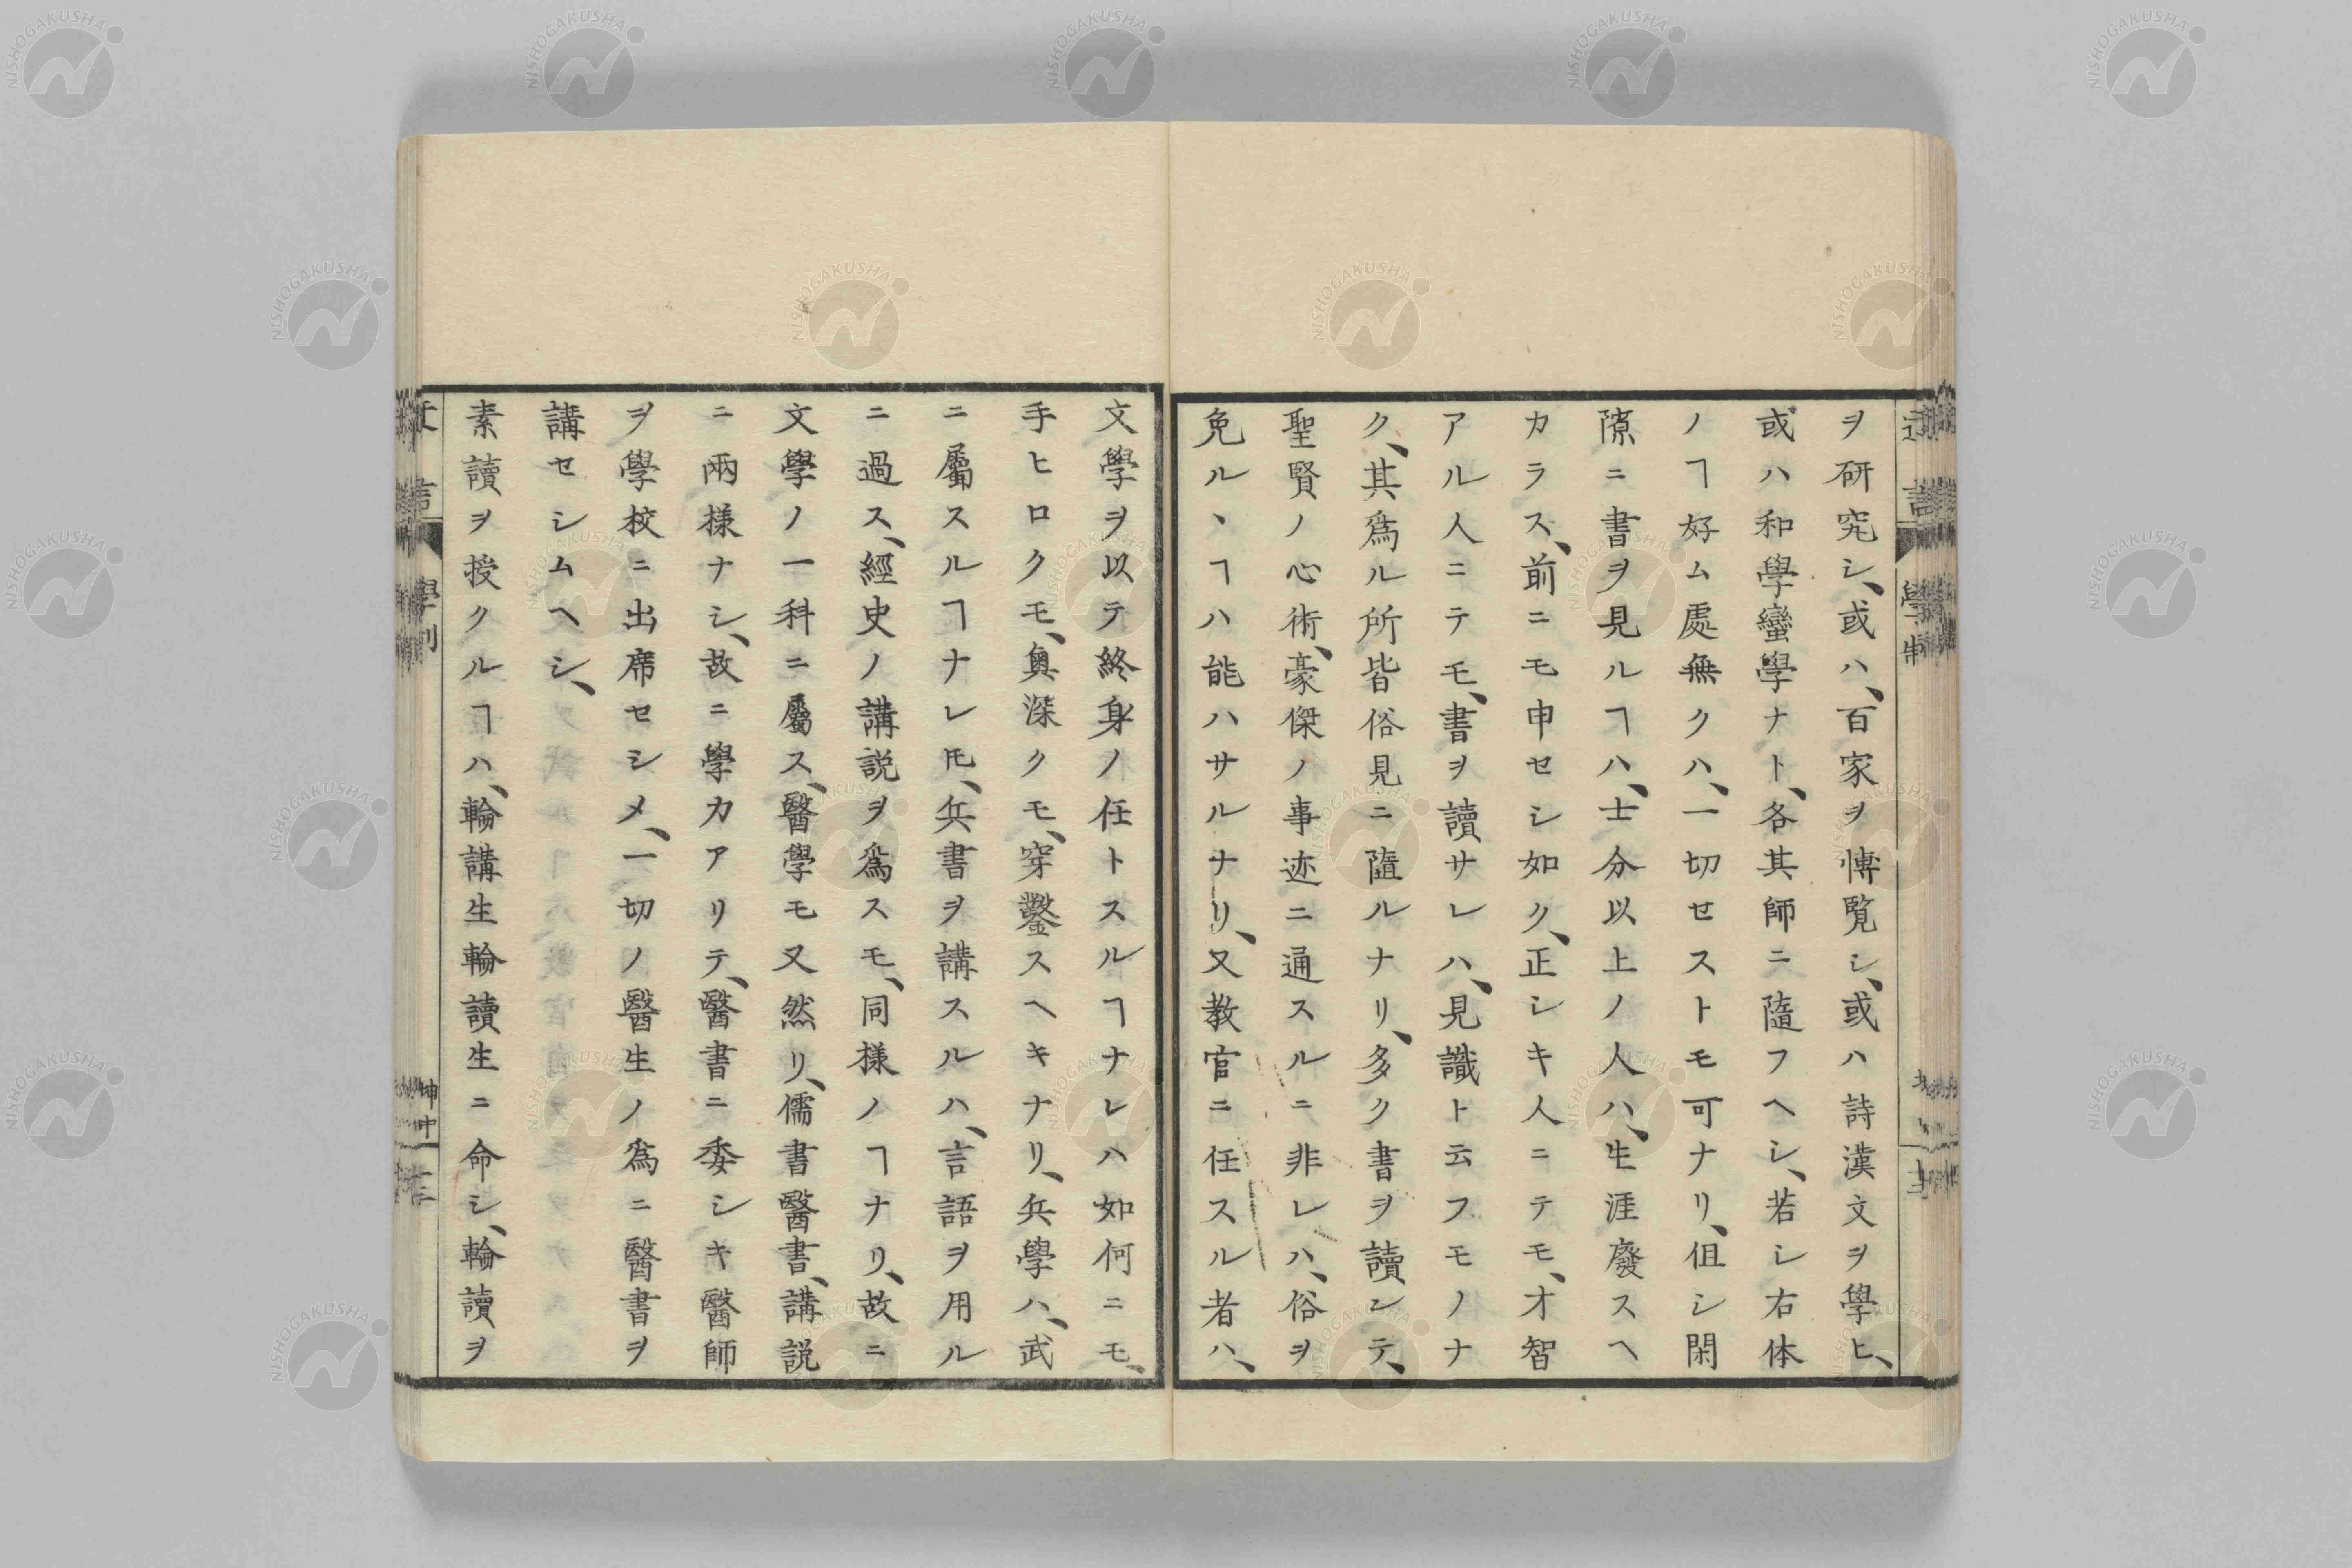 ヲ研究シ、或ハ、百家ヲ博覧シ、或ハ詩漢文ヲ學ヒ、
或ハ和學蠻學ナト、各其師ニ隨フヘシ、若シ右体
ノヿ好ム處無クハ、一切セストモ可ナリ、伹シ閑
隙ニ書ヲ見ルヿハ、士分以上ノ人ハ、生涯廢スヘ
カラス、前ニモ申セシ如ク、正シキ人ニテモ、才智
アル人ニテモ、書ヲ讀サレハ、見識ト云フモノナ
ク、其爲ル所皆俗見ニ隨ルナリ、多ク書ヲ讀シテ、
聖賢ノ心術、豪傑ノ事迹ニ通スルニ非レハ、俗ヲ
免ルヽヿハ能ハサルナリ、又教官ニ任スル者ハ、
文學ヲ以テ終身ノ任トスルヿナレハ如何ニモ、
手ヒロクモ、奥深クモ、穿鑿スヘキナリ、兵學ハ、武
ニ屬スルヿナレ𪜈、兵書ヲ講スルハ、言語ヲ用ル
ニ過ス、經史ノ講説ヲ爲スモ、同様ノヿナリ、故ニ
文學ノ一科ニ屬ス、醫學モ又然リ、儒書醫書、講説
ニ兩様ナシ、故ニ學力アリテ、醫書ニ委シキ醫師
ヲ學校ニ出席セシメ、一切ノ醫生ノ爲ニ醫書ヲ
講セシムヘシ、
素讀ヲ授クルヿハ、輪講生輪讀生ニ命シ、輪讀ヲ
NISHOGAKUSHA